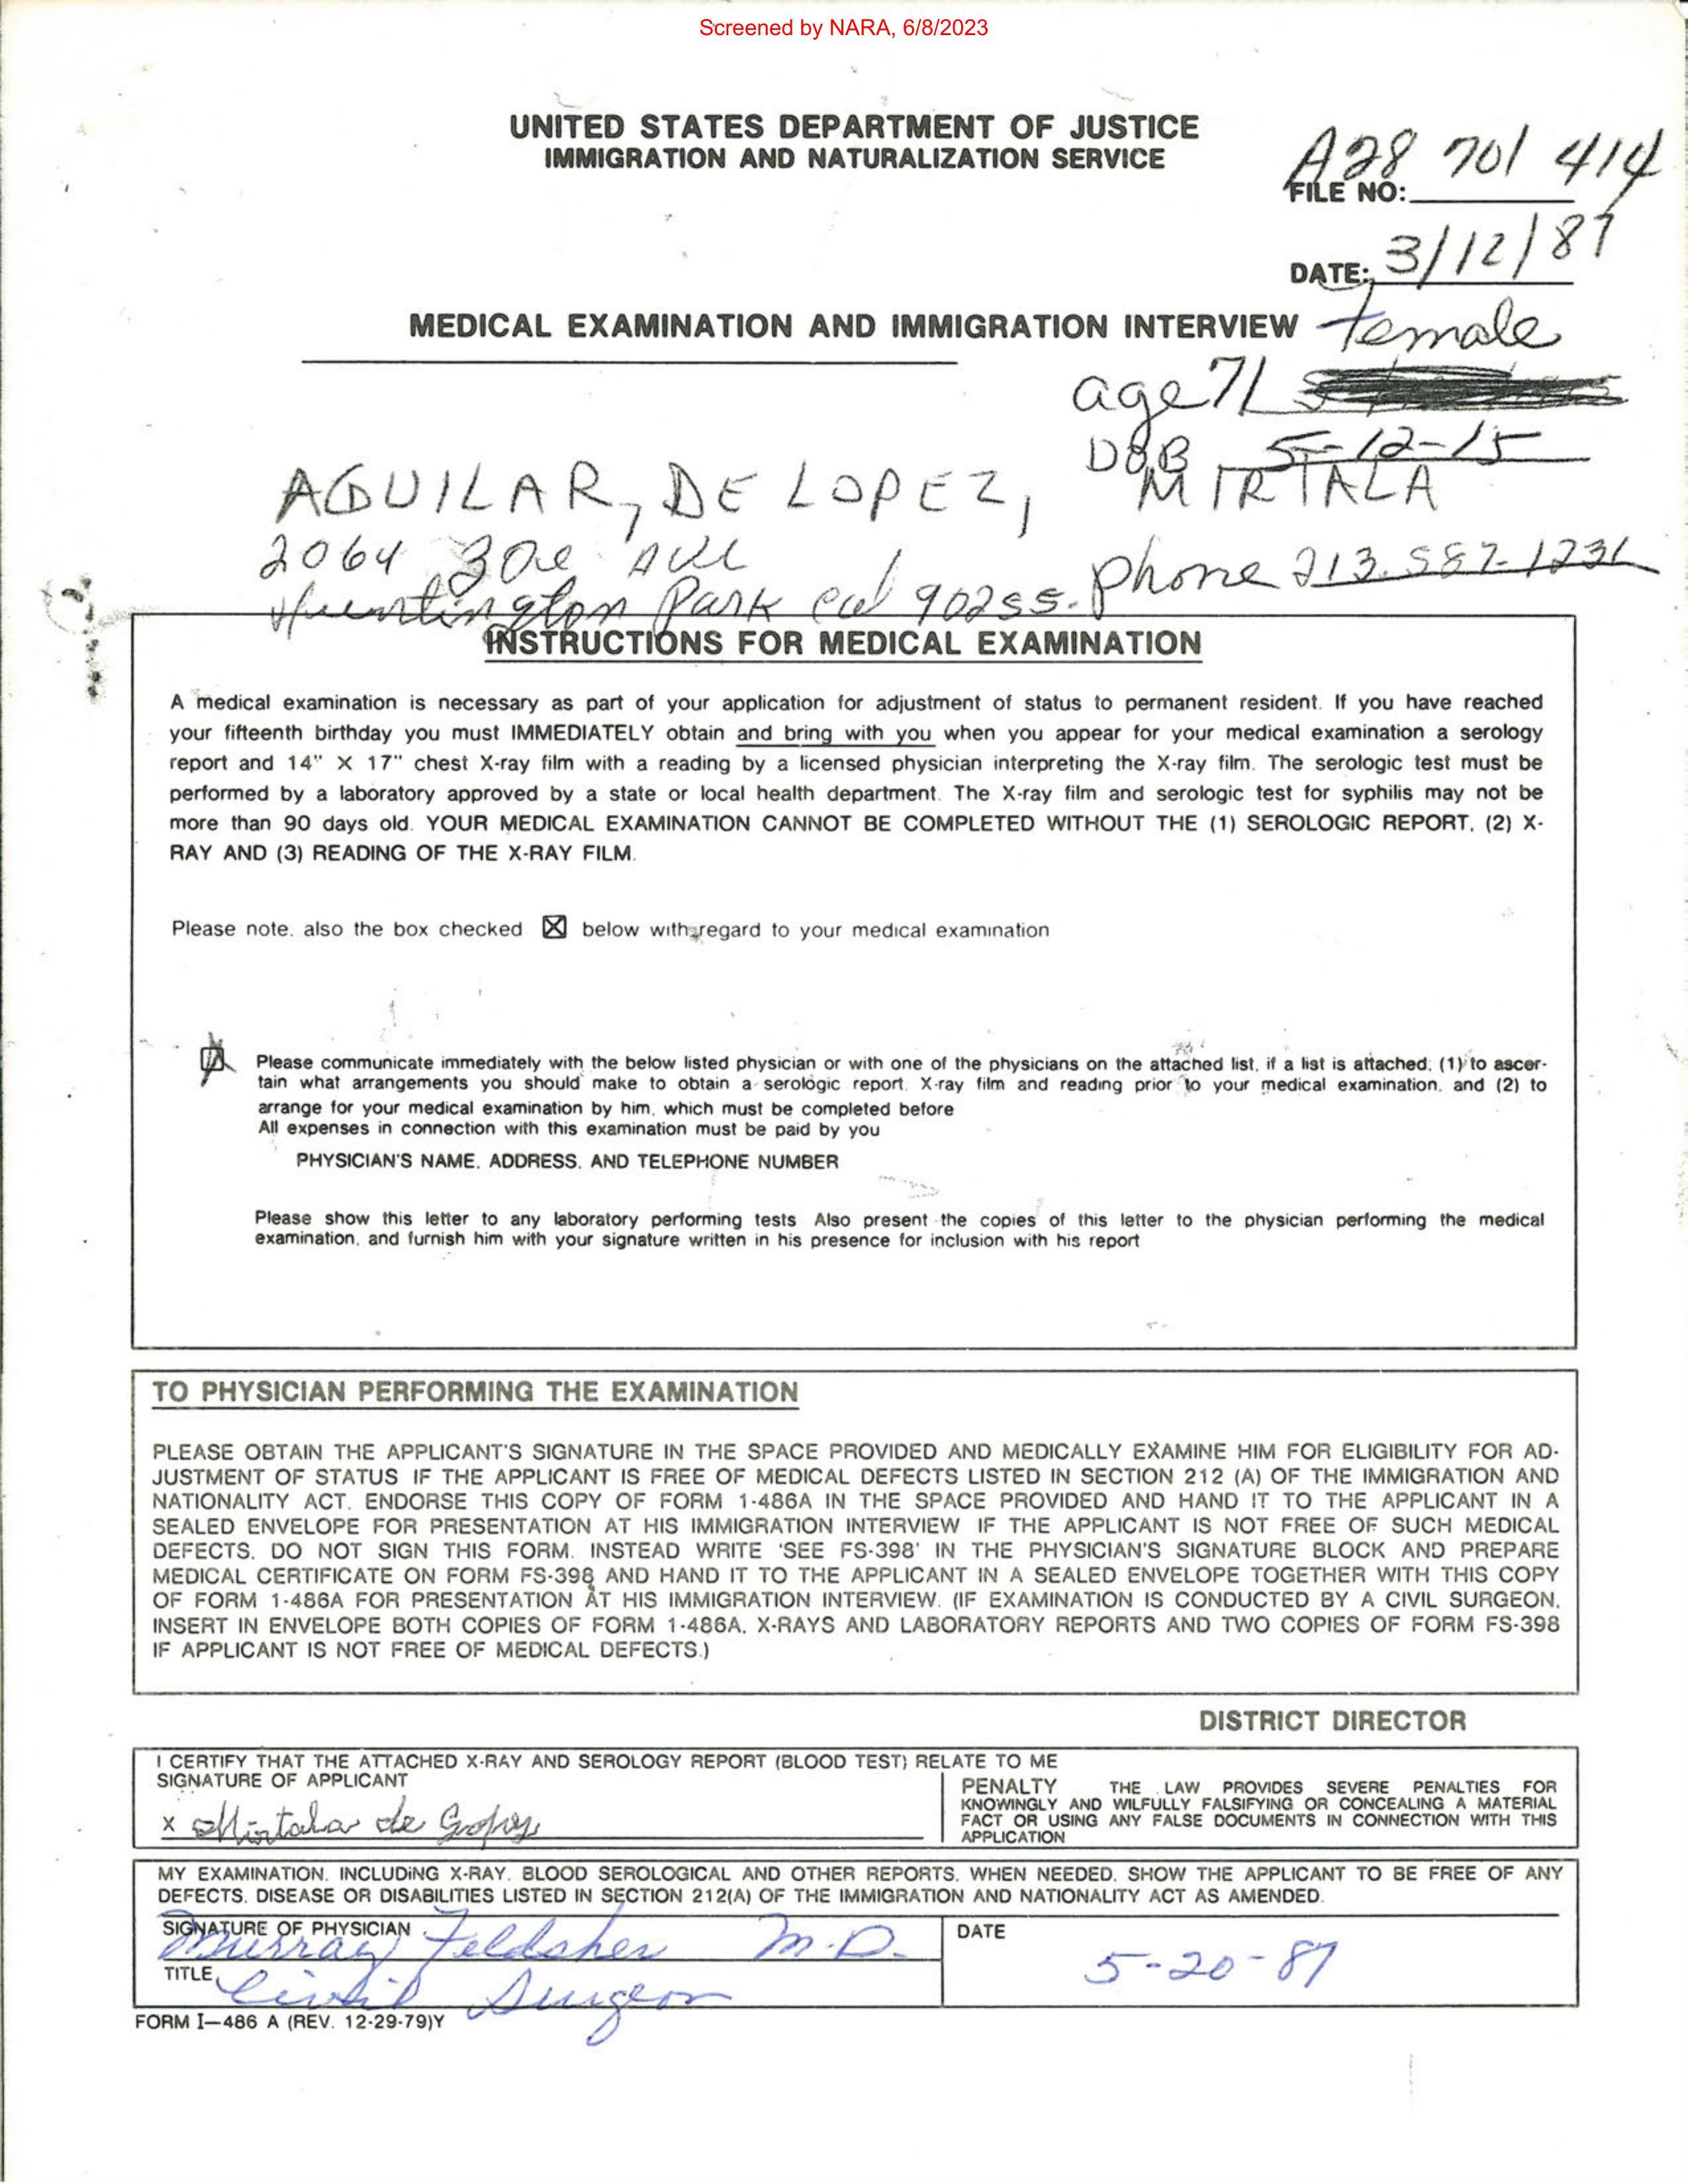 Screened by NARA, 6/8/2023
UNITED STATES DEPARTMENT OF JUSTICE
IMMIGRATION AND NATURALIZATION SERVICE
A28 701 414
FILE NO:
DATE: 3/12/87
MEDICAL EXAMINATION AND IMMIGRATION INTERVIEW
female
age 71
DOB 5-12-15
AGUILAR, DE LOPEZ, MIRTALA
2064
Huntington Park cal 90255. phone 213.587-1236
INSTRUCTIONS FOR MEDICAL EXAMINATION
A medical examination is necessary as part of your application for adjustment of status to permanent resident. If you have reached
your fifteenth birthday you must IMMEDIATELY obtain and bring with you when you appear for your medical examination a serology
report and 14" X 17" chest X-ray film with a reading by a licensed physician interpreting the X-ray film. The serologic test must be
performed by a laboratory approved by a state or local health department. The X-ray film and serologic test for syphilis may not be
more than 90 days old. YOUR MEDICAL EXAMINATION CANNOT BE COMPLETED WITHOUT THE (1) SEROLOGIC REPORT, (2) X-
RAY AND (3) READING OF THE X-RAY FILM.
Please note. also the box checked ☒ below with regard to your medical examination
Please communicate immediately with the below listed physician or with one of the physicians on the attached list, if a list is attached; (1) to ascer-
tain what arrangements you should make to obtain a serologic report. X-ray film and reading prior to your medical examination. and (2) to
arrange for your medical examination by him, which must be completed before
All expenses in connection with this examination must be paid by you
PHYSICIAN'S NAME. ADDRESS. AND TELEPHONE NUMBER
Please show this letter to any laboratory performing tests Also present the copies of this letter to the physician performing the medical
examination. and furnish him with your signature written in his presence for inclusion with his report
TO PHYSICIAN PERFORMING THE EXAMINATION
PLEASE OBTAIN THE APPLICANT'S SIGNATURE IN THE SPACE PROVIDED AND MEDICALLY EXAMINE HIM FOR ELIGIBILITY FOR AD-
JUSTMENT OF STATUS IF THE APPLICANT IS FREE OF MEDICAL DEFECTS LISTED IN SECTION 212 (A) OF THE IMMIGRATION AND
NATIONALITY ACT. ENDORSE THIS COPY OF FORM 1-486A IN THE SPACE PROVIDED AND HAND IT TO THE APPLICANT IN A
SEALED ENVELOPE FOR PRESENTATION AT HIS IMMIGRATION INTERVIEW IF THE APPLICANT IS NOT FREE OF SUCH MEDICAL
DEFECTS. DO NOT SIGN THIS FORM. INSTEAD WRITE 'SEE FS-398' IN THE PHYSICIAN'S SIGNATURE BLOCK AND PREPARE
MEDICAL CERTIFICATE ON FORM FS-398 AND HAND IT TO THE APPLICANT IN A SEALED ENVELOPE TOGETHER WITH THIS COPY
OF FORM 1-486A FOR PRESENTATION AT HIS IMMIGRATION INTERVIEW. (IF EXAMINATION IS CONDUCTED BY A CIVIL SURGEON,
INSERT IN ENVELOPE BOTH COPIES OF FORM 1-486A, X-RAYS AND LABORATORY REPORTS AND TWO COPIES OF FORM FS-398
IF APPLICANT IS NOT FREE OF MEDICAL DEFECTS.)
DISTRICT DIRECTOR
I CERTIFY THAT THE ATTACHED X-RAY AND SEROLOGY REPORT (BLOOD TEST) RELATE TO ME
SIGNATURE OF APPLICANT
x Mirtala de Lopez
PENALTY THE LAW PROVIDES SEVERE PENALTIES FOR
KNOWINGLY AND WILFULLY FALSIFYING OR CONCEALING A MATERIAL
FACT OR USING ANY FALSE DOCUMENTS IN CONNECTION WITH THIS
APPLICATION
MY EXAMINATION. INCLUDING X-RAY. BLOOD SEROLOGICAL AND OTHER REPORTS. WHEN NEEDED. SHOW THE APPLICANT TO BE FREE OF ANY
DEFECTS. DISEASE OR DISABILITIES LISTED IN SECTION 212(A) OF THE IMMIGRATION AND NATIONALITY ACT AS AMENDED.
SIGNATURE OF PHYSICIAN Murray Feldsher M.D.
DATE
5-20-87
TITLE Civil Surgeon
FORM I-486 A (REV. 12-29-79)Y